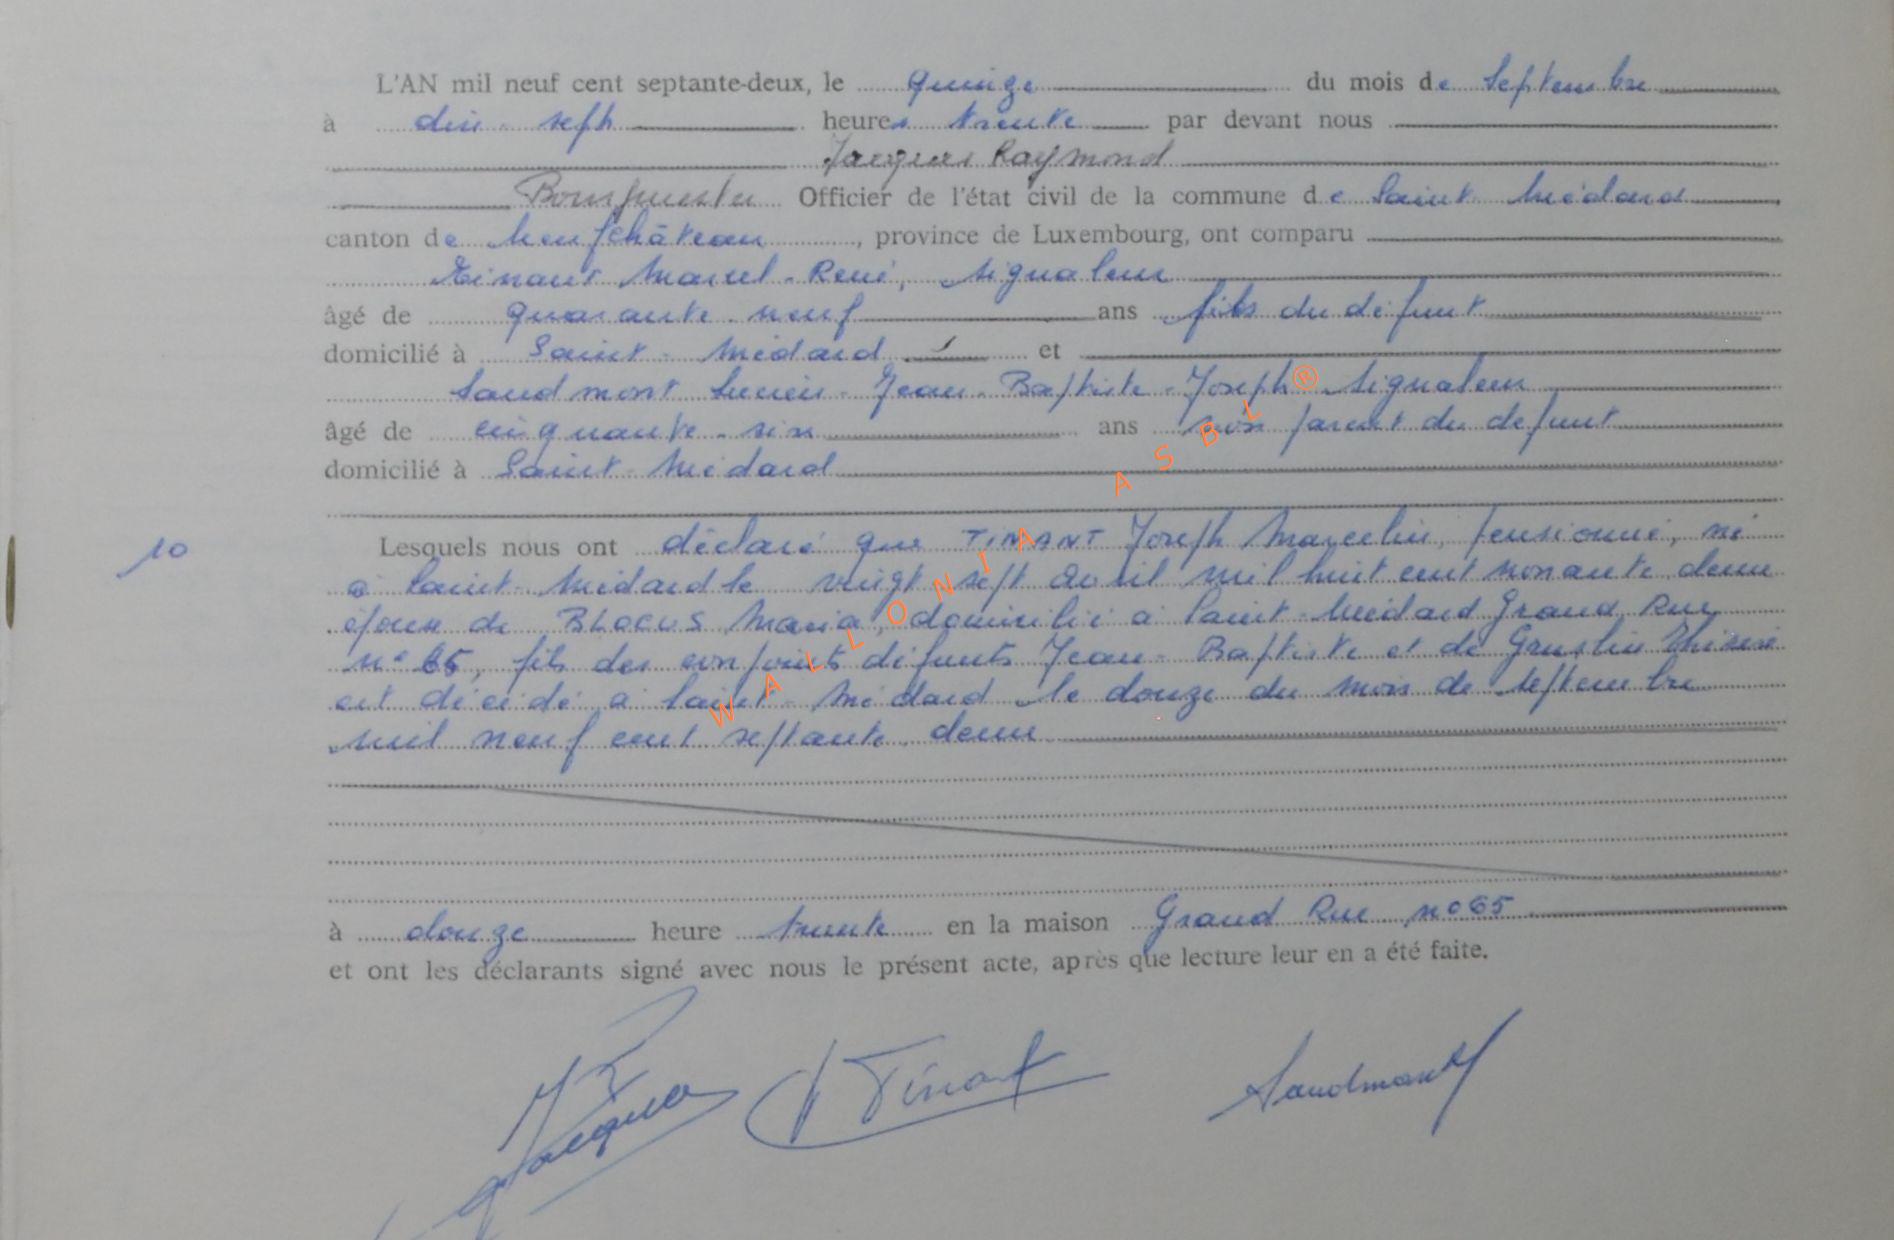 L'AN mil neuf cent septante-deux, le quinze du mois de Septembre
à dix-sept heures trente par devant nous
Jacques Raymond
Bourgmestre Officier de l'état civil de la commune de Saint-Médard
canton de Neufchâteau, province de Luxembourg, ont comparu
Tinant Marcel-René, signaleur
âgé de quarante-neuf ans fils du défunt
domicilié à Saint-Médard et
Sandmont Lucien-Jean-Baptiste-Joseph signaleur
âgé de cinquante-six ans non parent du défunt
domicilié à Saint-Médard
10
Lesquels nous ont déclaré que TINANT Joseph Marcelin, pensionné, né
à Saint-Médard le vingt sept avril mil huit cent nonante deux
époux de BLOCUS Maria, domicilié à Saint-Médard Grand Rue
n° 65, fils des conjoints défunts Jean-Baptiste et de Gruslin Thérèse
est décédé à Saint-Médard le douze du mois de septembre
mil neuf cent septante-deux
à douze heure trente en la maison Grand Rue n° 65
et ont les déclarants signé avec nous le présent acte, après que lecture leur en a été faite.
Jacques Tinant Sandmont
WALLONIA ASBL®